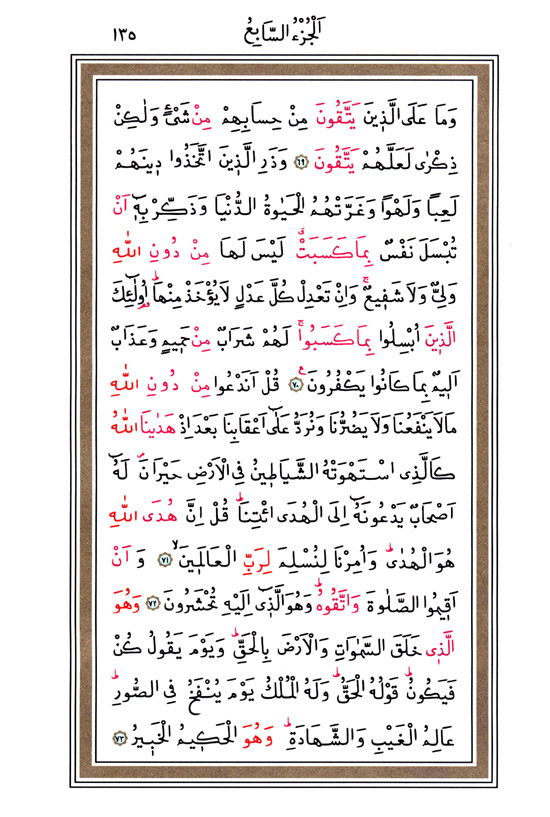 اَلْجُزْءُ السَّابِعُ ١٣٥
وَمَا عَلَى الَّذ۪ينَ يَتَّقُونَ مِنْ حِسَابِهِمْ مِنْ شَيْءٍ وَلٰكِنْ
ذِكْرٰى لَعَلَّهُمْ يَتَّقُونَ ﴿٦٩﴾ وَذَرِ الَّذ۪ينَ اتَّخَذُوا د۪ينَهُمْ
لَعِباً وَلَهْواً وَغَرَّتْهُمُ الْحَيٰوةُ الدُّنْيَا وَذَكِّرْ بِه۪ٓ اَنْ
تُبْسَلَ نَفْسٌ بِمَا كَسَبَتْۗ لَيْسَ لَهَا مِنْ دُونِ اللّٰهِ
وَلِيٌّ وَلَا شَف۪يعٌۚ وَاِنْ تَعْدِلْ كُلَّ عَدْلٍ لَا يُؤْخَذْ مِنْهَاۜ اُو۬لٰٓئِكَ
الَّذ۪ينَ اُبْسِلُوا بِمَا كَسَبُواۚ لَهُمْ شَرَابٌ مِنْ حَم۪يمٍ وَعَذَابٌ
اَل۪يمٌ بِمَا كَانُوا يَكْفُرُونَ۟ ﴿٧٠﴾ قُلْ اَنَدْعُوا مِنْ دُونِ اللّٰهِ
مَالَا يَنْفَعُنَا وَلَا يَضُرُّنَا وَنُرَدُّ عَلٰٓى اَعْقَابِنَا بَعْدَ اِذْ هَدٰينَا اللّٰهُ
كَالَّذِي اسْتَهْوَتْهُ الشَّيَاط۪ينُ فِي الْاَرْضِ حَيْرَانَۖ لَهُٓ
اَصْحَابٌ يَدْعُونَهُٓ اِلَى الْهُدَى ائْتِنَاۜ قُلْ اِنَّ هُدَى اللّٰهِ
هُوَ الْهُدٰىۜ وَاُمِرْنَا لِنُسْلِمَ لِرَبِّ الْعَالَم۪ينَۙ ﴿٧١﴾ وَ اَنْ
اَق۪يمُوا الصَّلٰوةَ وَاتَّقُوهُۜ وَهُوَ الَّذ۪ٓي اِلَيْهِ تُحْشَرُونَ ﴿٧٢﴾ وَهُوَ
الَّذ۪ي خَلَقَ السَّمٰوَاتِ وَالْاَرْضَ بِالْحَقِّۜ وَيَوْمَ يَقُولُ كُنْ
فَيَكُونُۜ قَوْلُهُ الْحَقُّۜ وَلَهُ الْمُلْكُ يَوْمَ يُنْفَخُ فِي الصُّورِۜ
عَالِمُ الْغَيْبِ وَالشَّهَادَةِۜ وَهُوَ الْحَك۪يمُ الْخَب۪يرُ ﴿٧٣﴾